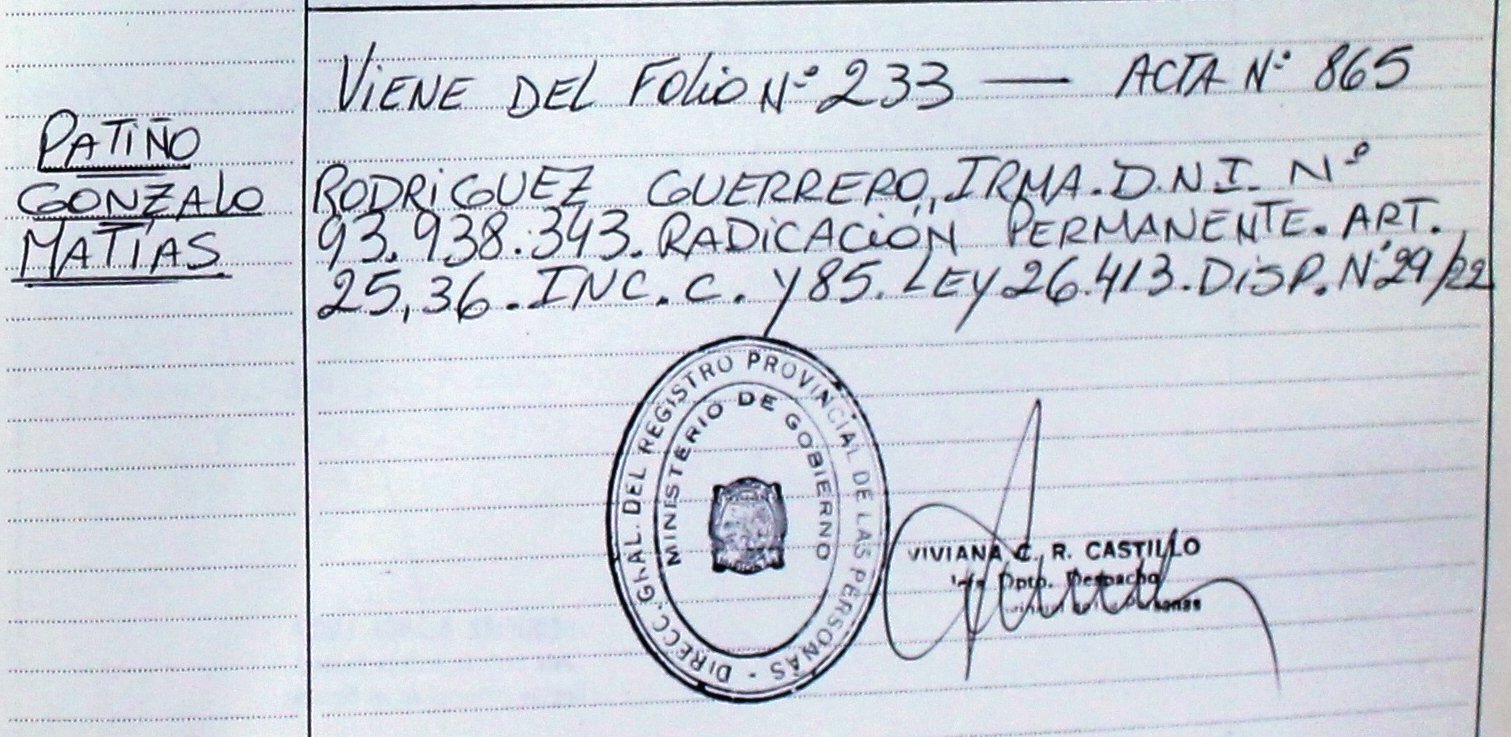 PATIÑO
GONZALO
MATÍAS
VIENE DEL FOLIO Nº 233 — ACTA Nº 865
RODRIGUEZ GUERRERO, IRMA. D.N.I. Nº
93.938.343. RADICACIÓN PERMANENTE. ART.
25,36. INC. C. Y 85. LEY 26.413. DISP. Nº 29/22
DIRECC. GRAL. DEL REGISTRO PROVINCIAL DE LAS PERSONAS -
MINISTERIO DE GOBIERNO
VIVIANA C. R. CASTILLO
Dpto. Despacho